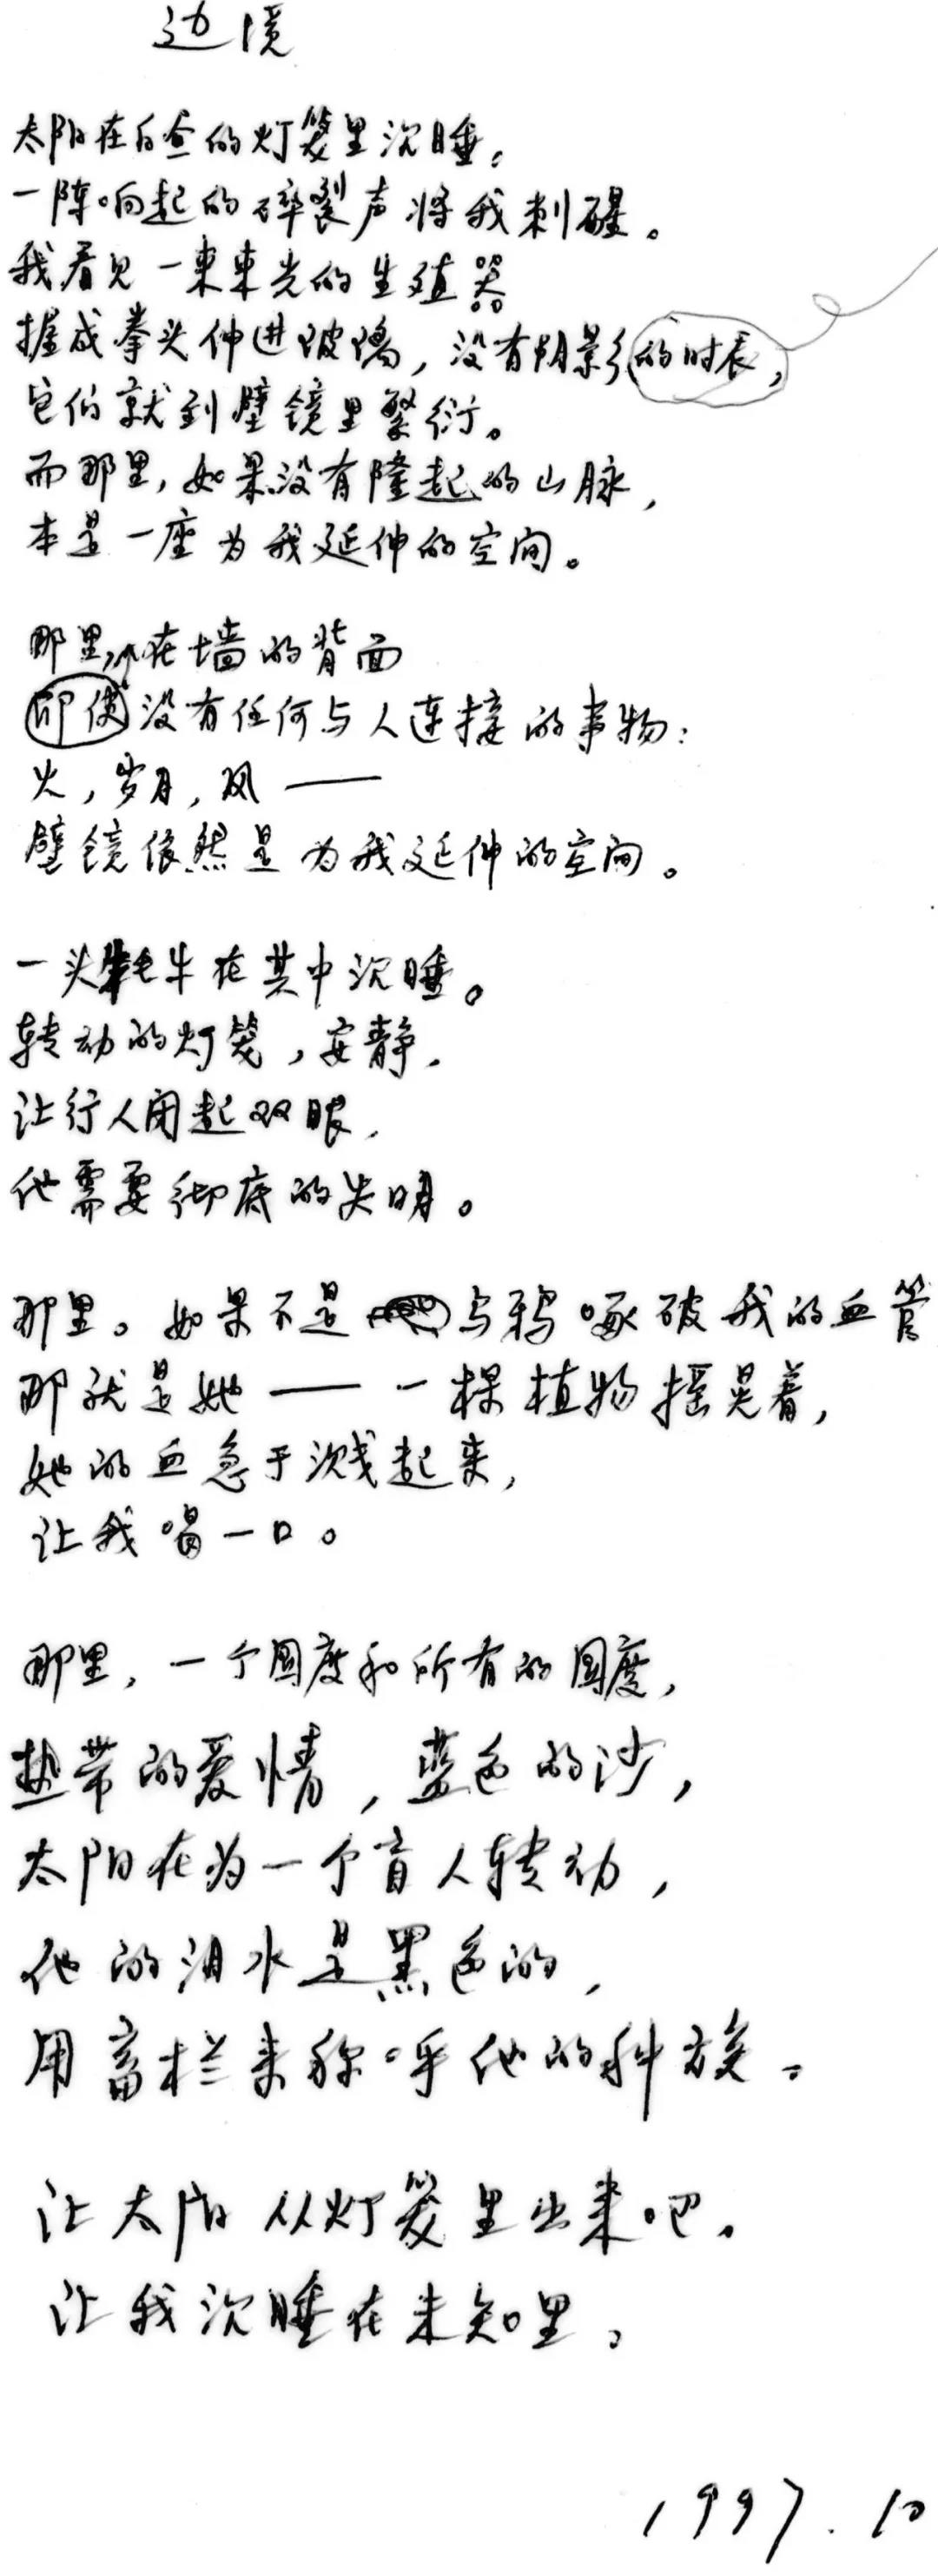 边境
太阳在白昼的灯笼里沉睡。
一阵响起的碎裂声将我刺醒。
我看见一束束光的生殖器
握成拳头伸进玻璃，没有阴影的时辰，
它们就到壁镜里繁衍。
而那里，如果没有隆起的山脉，
本是一座为我延伸的空间。
那里，在墙的背面
即使没有任何与人连接的事物：
火，岁月，风——
壁镜依然是为我延伸的空间。
一头牦牛在其中沉睡。
转动的灯笼，安静，
让行人闭起双眼，
他需要彻底的失明。
那里。如果不是乌鸦啄破我的血管
那就是她——一棵植物摇晃着，
她的血急于溅起来，
让我喝一口。
那里，一个国度和所有的国度，
热带的爱情，蓝色的沙，
太阳在为一个盲人转动，
他的泪水是黑色的，
用畜栏来称呼他的种族。
让太阳从灯笼里出来吧。
让我沉睡在未知里。
1997.10